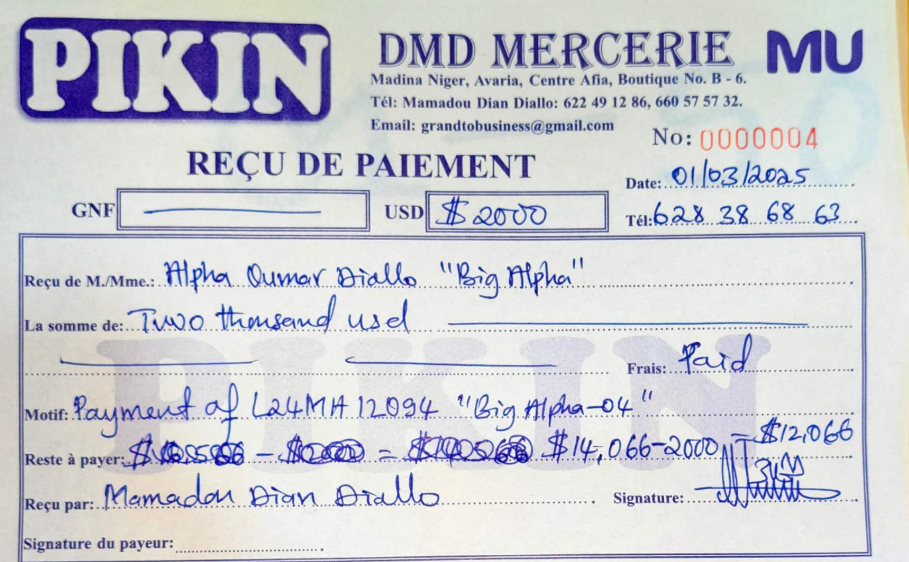 PIKIN
DMD MERCERIE MU
Madina Niger, Avaria, Centre Afia, Boutique No. B - 6.
Tél: Mamadou Dian Diallo: 622 49 12 86, 660 57 57 32.
Email: grandtobusiness@gmail.com
No: 0000004
REÇU DE PAIEMENT
Date: 01/03/2025
GNF USD $2000 Tél: 628 38 68 63
Reçu de M./Mme.: Alpha Oumar Diallo "Big Alpha"
La somme de: Two thousand usd
Frais: Paid
Motif: Payment of L24MA12094 "Big Alpha-04"
Reste à payer: $14,066-2000 = $12,066
Reçu par: Mamadou Dian Diallo Signature:
Signature du payeur:
PIKIN